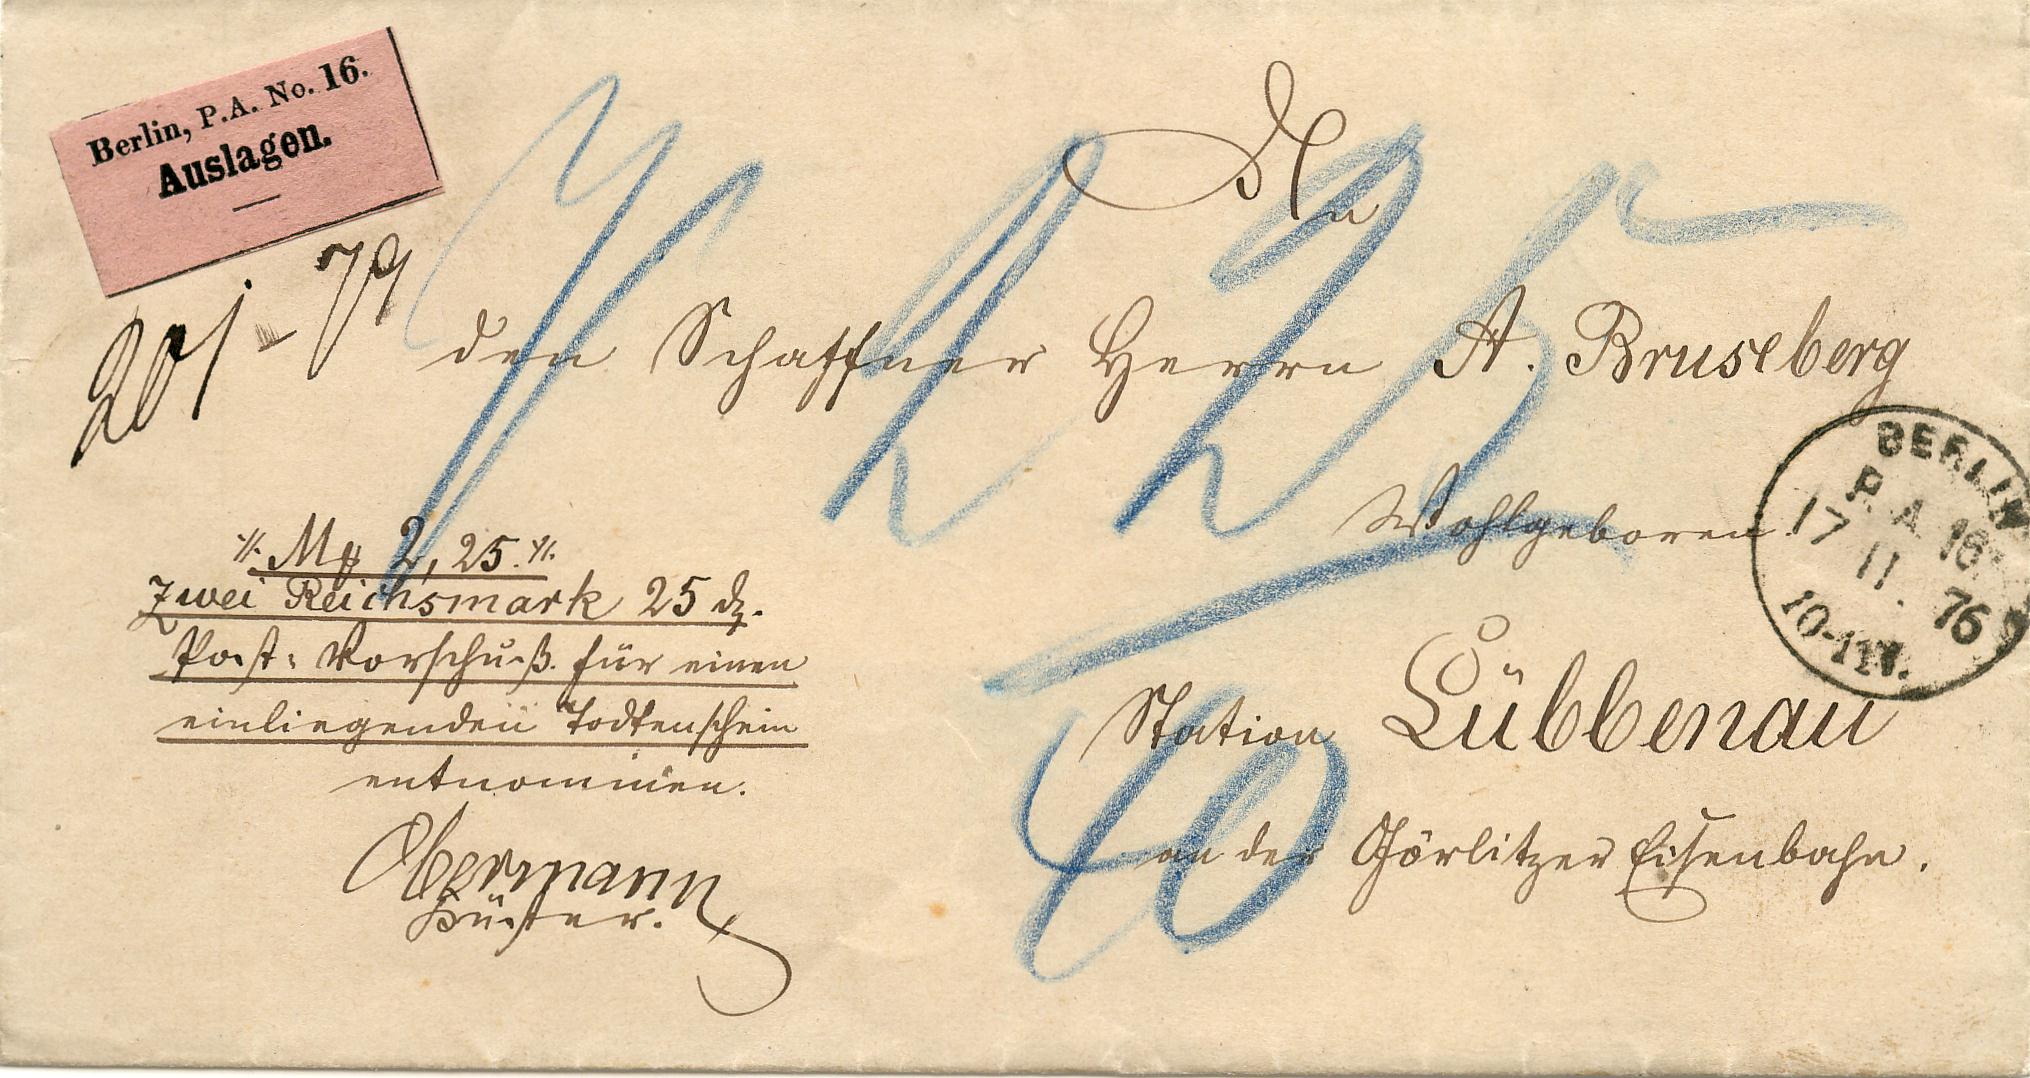 Berlin, P.A. No. 16.
Auslagen.
201 - 79
An
den Schaffner Herrn A. Bruseberg
Wohlgeboren.
Station Lübbenau
an der Görlitzer Eisenbahn.
BERLIN
P. A. 16
17
11. 76
10-11V.
2 25
60
M 2, 25.
Zwei Reichsmark 25 d.
Post-Vorschuß für einen
einliegenden Todtenschein
entnommen.
Obermann
Küster.